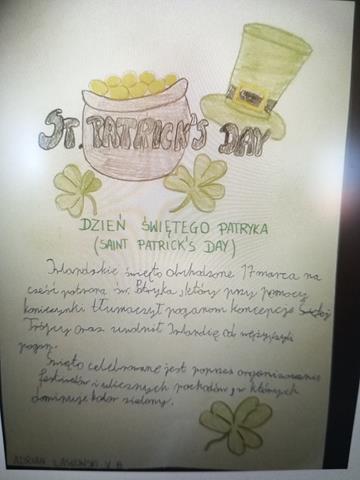 ST. PATRICK'S DAY
DZIEŃ ŚWIĘTEGO PATRYKA
(SAINT PATRICK'S DAY)
Irlandzkie święto obchodzone 17 marca na
cześć patrona św. Patryka, który przy pomocy
koniczynki tłumaczył poganom koncepcję Świętej
Trójcy oraz uwolnił Irlandię od
pogan.
Święto celebrowane jest poprzez organizowanie
festiwali i ulicznych pochodów, w których
dominuje kolor zielony.
ADRIAN LASKOWSKI V B